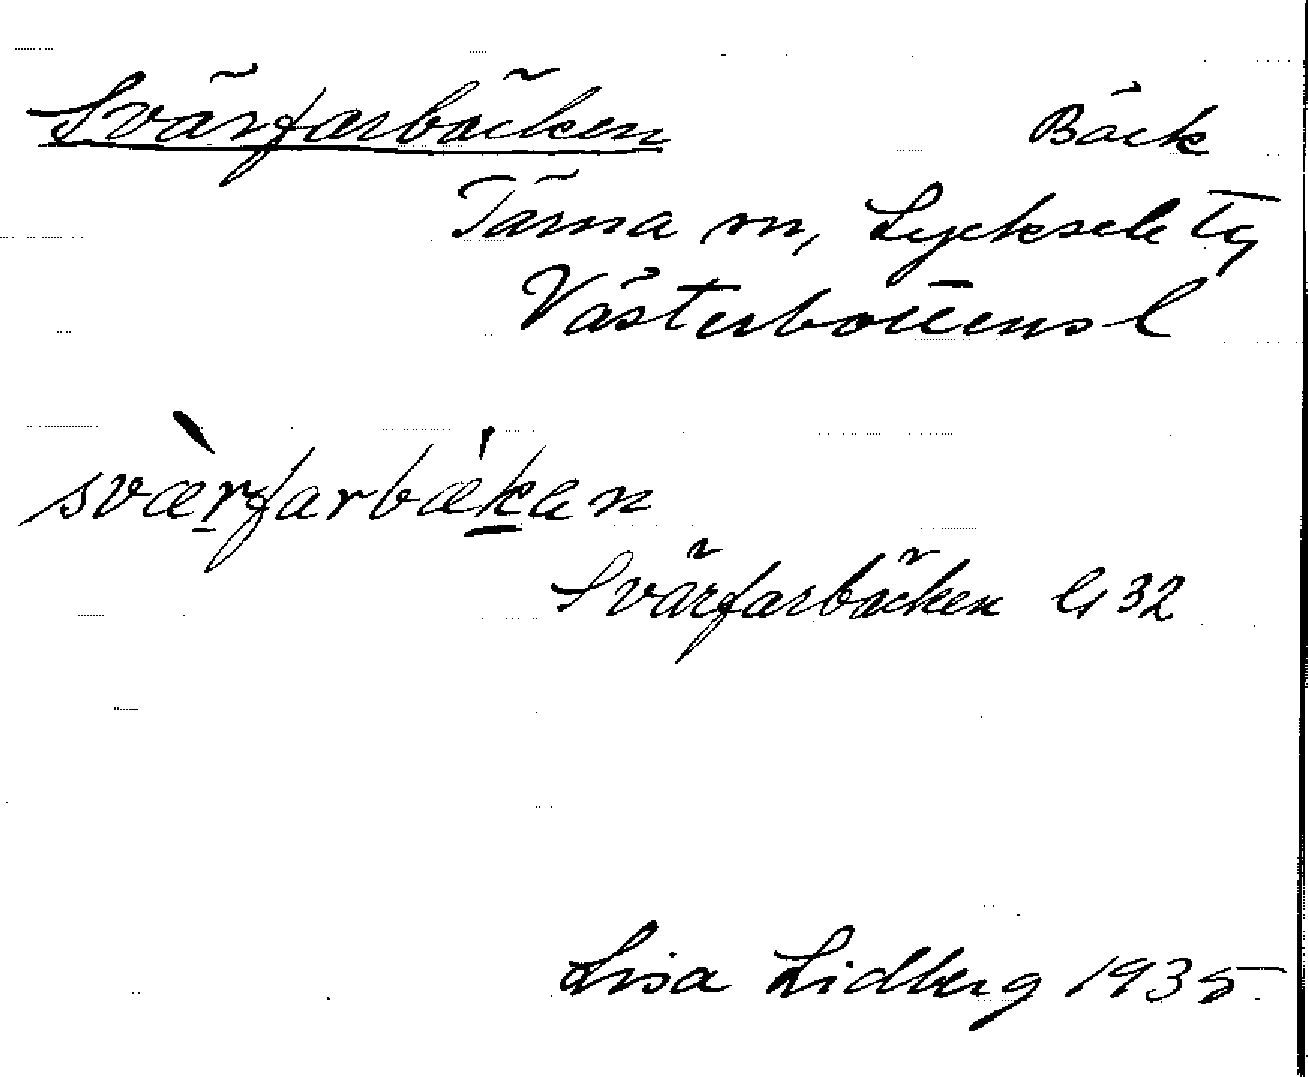 Svärfarbäcken Bäck
Tärna sn, Lycksele tg
Västerbottens l
sværfarbækan
Svärfarbäcken G 32
Lisa Lidberg 1935